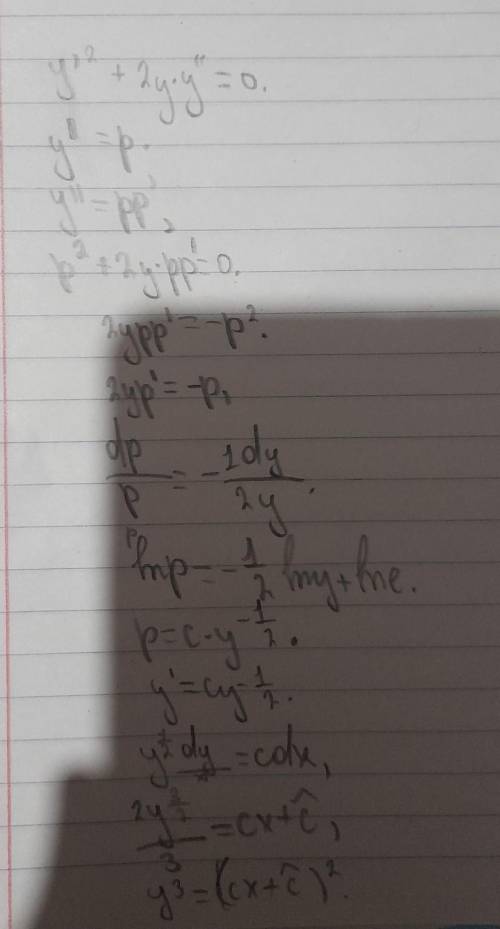 y'² + 2y·y'' = 0.
y' = p.
y'' = pp',
p² + 2y·pp' = 0.
2ypp' = -p².
2yp' = -p,
dp/p = -1dy/2y.
lnp = -1/2 lny + lnc.
p = c·y^-1/2.
y' = cy^-1/2.
y^1/2 dy = cdx,
2y^3/2 / 3 = cx + ĉ,
y³ = (cx + ĉ)².